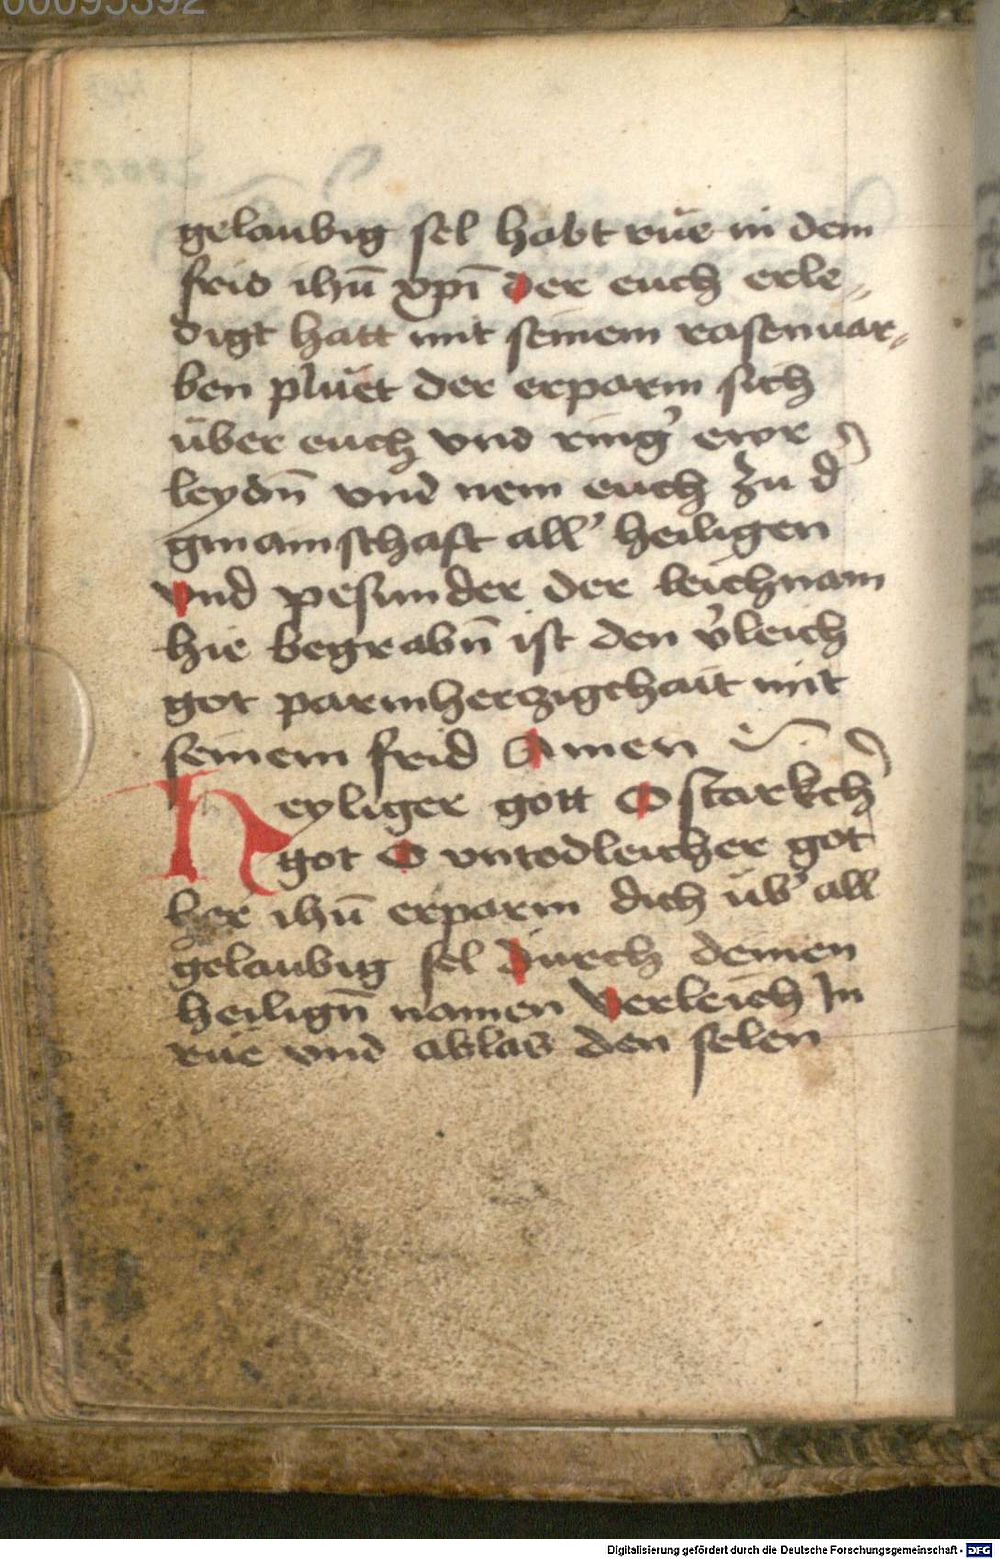 00095392
gelaubig sel habt rüe in dem
frid ihū xpī der euch erle⸗
digt hatt mit seinem rosenuar⸗
ben plüet der erparm sich
über euch vnd ring' ewr
leydn̄ vnd nem euch zu d'
gmainschaft all' heiligen
vnd pesunder der leichnam
hie begrabn̄ ist den v'leich
got parmherzigchait mit
seinem frid Amen
Heyliger gott O starkch'
got O vntodleicher got
her ihū erparm dich üb' all
gelaubig sel durch deinen
heilign̄ namen Verleich In
rue vnd ablas den selen
Digitalisierung gefördert durch die Deutsche Forschungsgemeinschaft - DFG